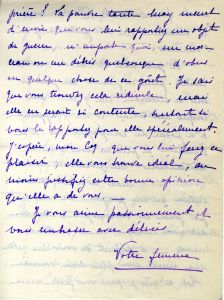 prière ? La pauvre tante May meurt
d'envie que vous lui rapportiez un objet
de guerre, n'importe quoi, un mor-
ceau ou un débris quelconque d'obus
ou quelque chose de ce goût. Je sais
que vous trouvez cela ridicule, mais
elle en serait si contente, surtout si
vous le rapportez pour elle spécialement.
J'espère, mon Coq, que vous lui ferez ce
plaisir, elle vous trouve idéal, au
moins justifiez cette bonne opinion
qu'elle a de vous. —
Je vous aime passionnément et
vous embrasse avec délices
Votre femme